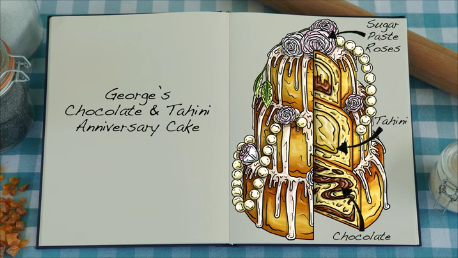 George's
Chocolate & Tahini
Anniversary Cake
Sugar
Paste
Roses
Tahini
Chocolate